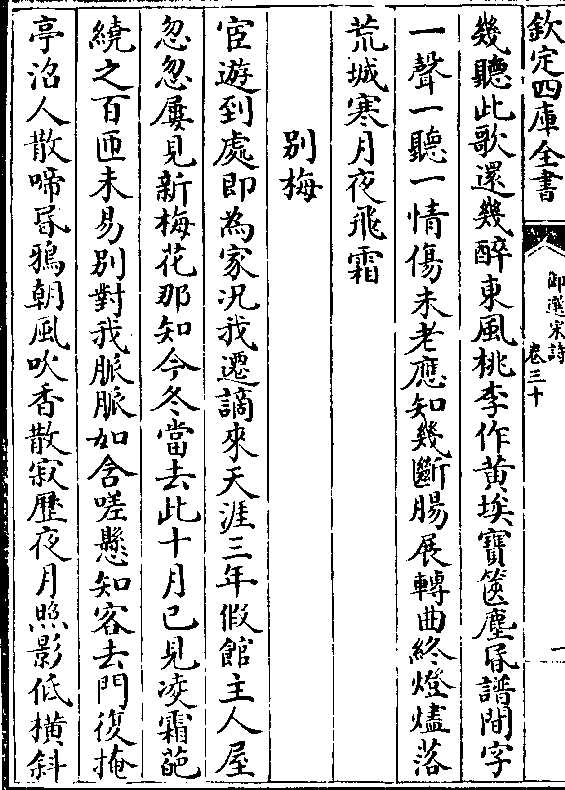 欽定四庫全書
御選宋詩
卷三十
一
幾聽此歌還幾醉東風桃李作黄埃寶篋塵昏譜間字
一聲一聽一情傷未老應知幾斷腸展轉曲終燈燼落
荒城寒月夜飛霜
别梅
宦遊到處即為家況我遷謫來天涯三年假館主人屋
忽忽屢見新梅花那知今冬當去此十月已見凌霜葩
繞之百匝未易别對我脈脈如含嗟懸知客去門復掩
亭沼人散啼昏鴉朝風吹香散寂歷夜月照影低横斜